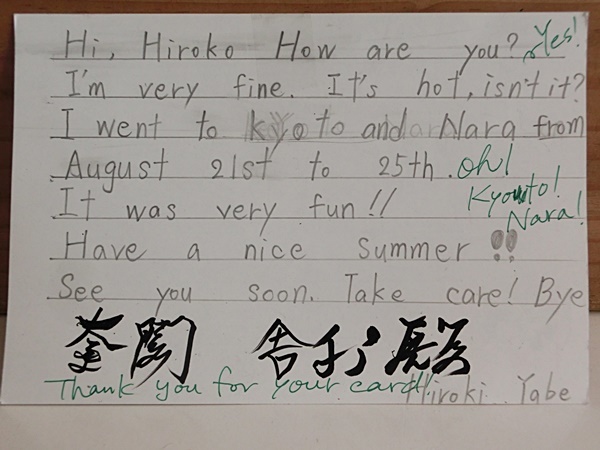 Hi, Hiroko How are you? Yes!
I'm very fine. It's hot, isn't it?
I went to Kyoto and Nara from
August 21st to 25th. oh!
Kyoto!
Nara!
It was very fun!!
Have a nice summer!!
See you soon. Take care! Bye
金閣 舎利殿
Thank you for your card!!
Hiroki Yabe